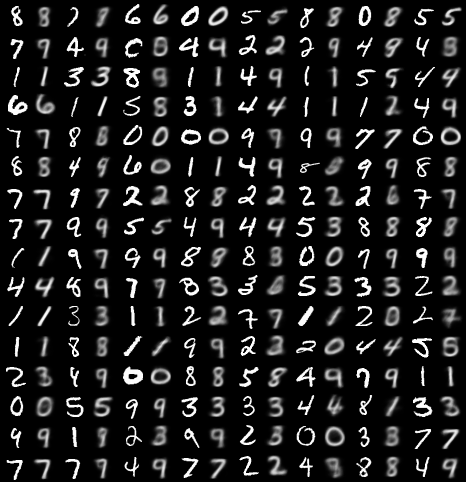 8 8 7 8 6 6 0 0 5 5 8 8 0 8 5 5
7 9 4 9 8 4 9 2 2 2 9 4 9 4 8
1 1 3 3 8 9 1 1 4 9 1 1 5 9 4 4
6 6 1 1 5 8 3 1 4 4 1 1 1 2 4 9
7 9 8 8 0 0 0 0 9 9 9 9 7 7 0 0
8 8 4 9 6 0 1 1 4 9 8 9 9 8 8
7 7 9 7 2 2 8 8 2 2 2 2 2 6 7 7
7 7 9 9 5 5 4 9 4 4 5 3 8 8 8 8
1 1 9 7 9 9 8 8 8 3 0 0 7 9 9 9
4 4 8 9 7 9 8 3 3 5 3 3 3 2 2
1 1 3 3 1 1 2 2 7 9 1 1 2 0 2 7
1 1 8 8 1 1 9 9 2 3 2 0 4 4 5 5
2 3 4 9 0 0 8 8 5 8 4 9 7 9 1 1
0 0 5 5 9 9 3 3 3 3 4 4 8 1 3 3
9 9 1 9 2 3 9 9 2 3 0 0 3 3 7 7
7 7 7 9 4 9 7 7 2 2 4 8 8 4 9